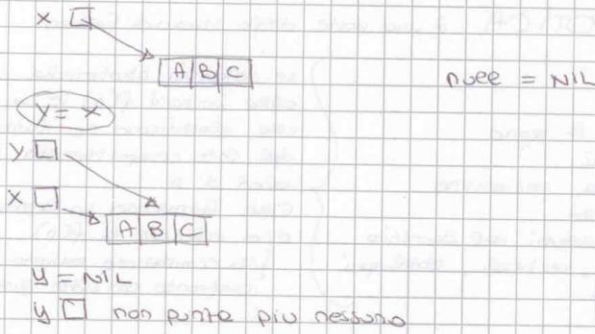 x
A B C
null = NIL
y = x
y
x
A B C
y = NIL
y non punta piu nessuno